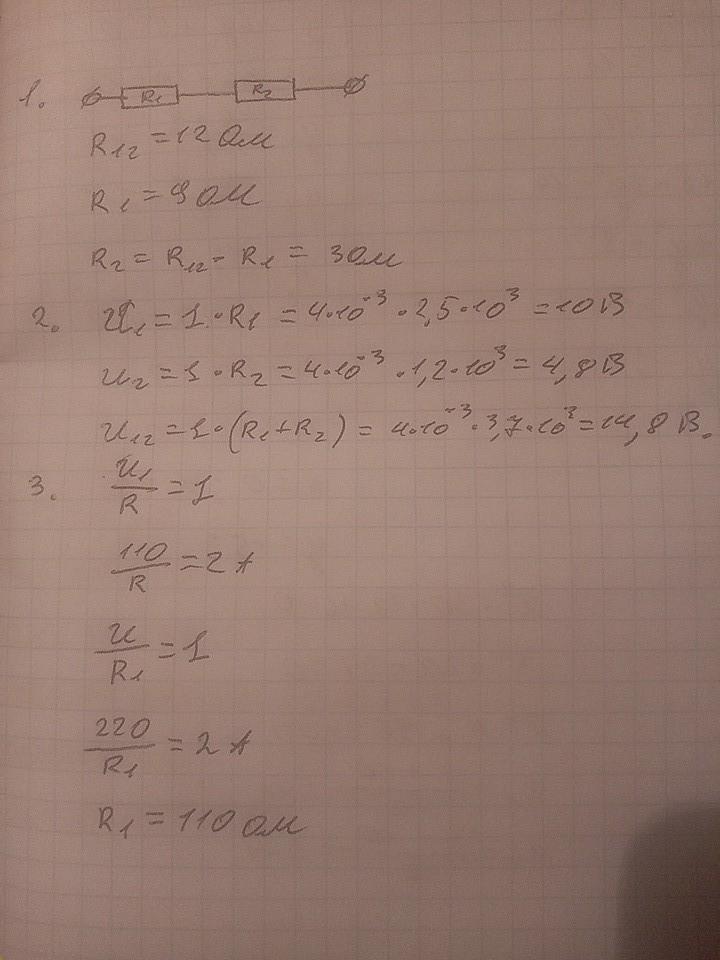 1. R₁ R₂
R₁₂ = 12 Ом
R₁ = 9 Ом
R₂ = R₁₂ - R₁ = 3 Ом
2. U₁ = 1 · R₁ = 4·10⁻³ · 2,5·10³ = 10 В
U₂ = 1 · R₂ = 4·10⁻³ · 1,2·10³ = 4,8 В
U₁₂ = 1 · (R₁+R₂) = 4·10⁻³ · 3,7·10³ = 14,8 В.
3. U₁/R = 1
110/R = 2 А
U/R₁ = 1
220/R₁ = 2 А
R₁ = 110 Ом